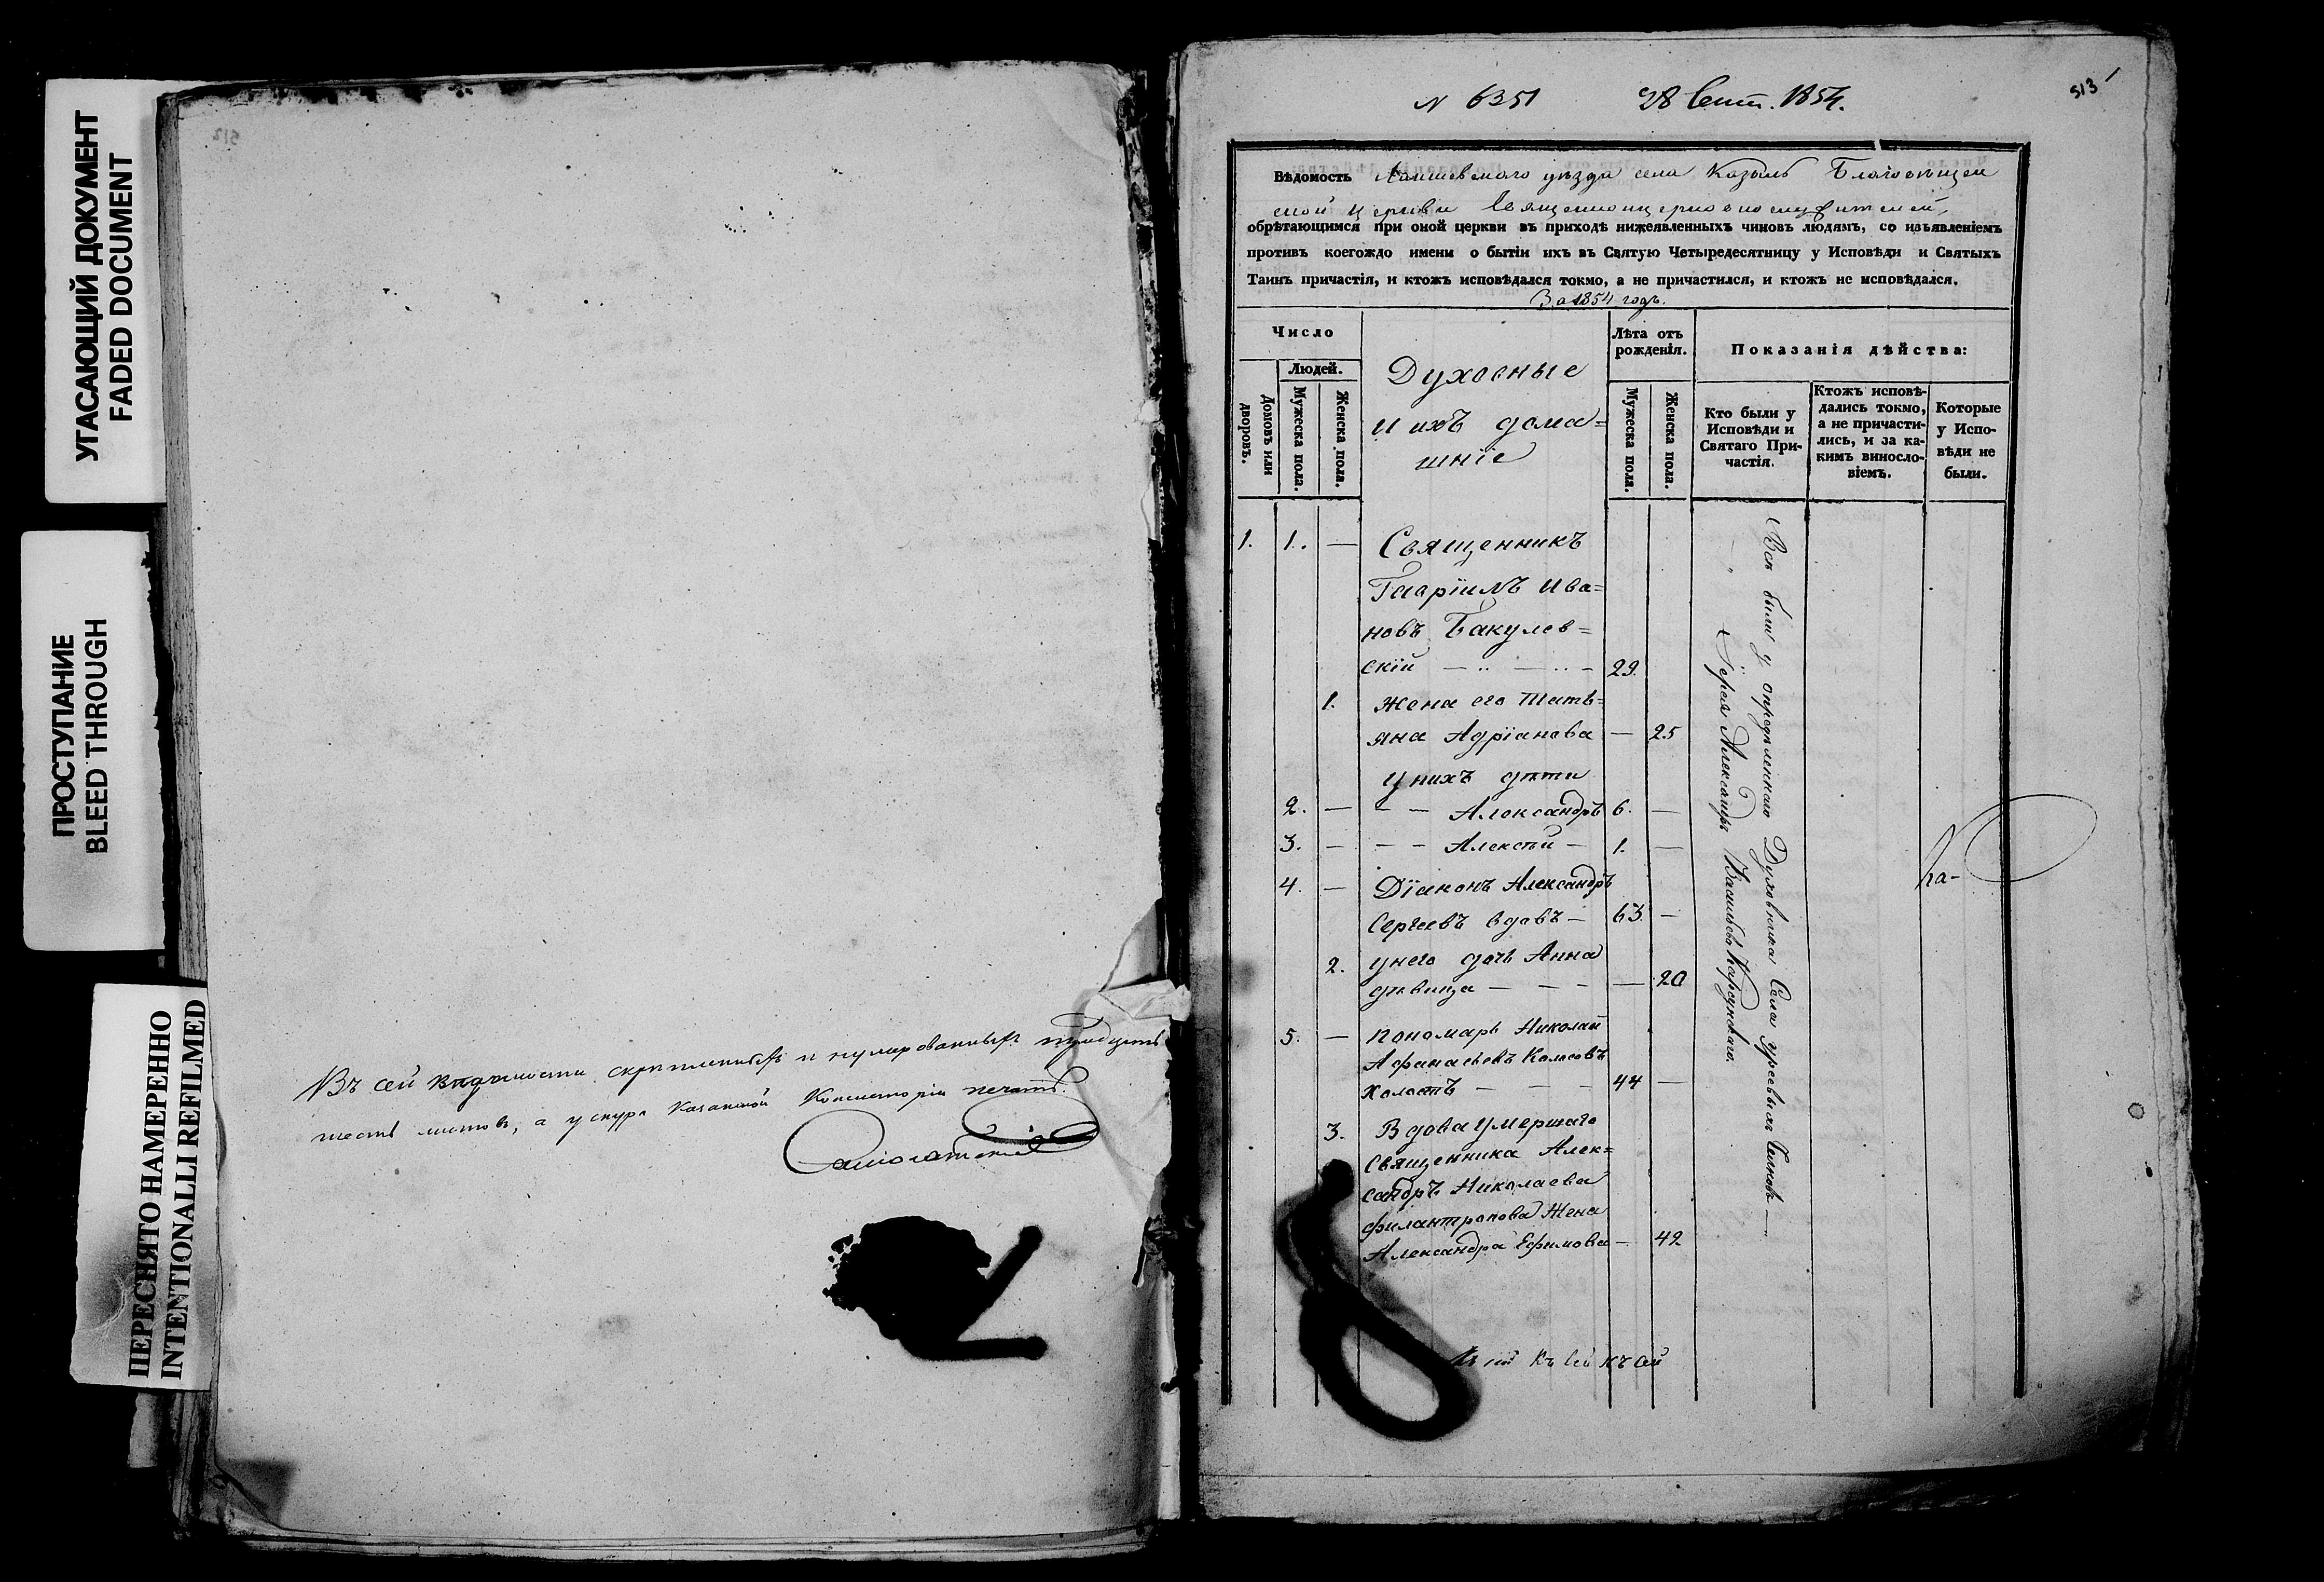 УГАСАЮЩИЙ ДОКУМЕНТ
FADED DOCUMENT
ПРОСТУПАНИЕ
BLEED THROUGH
ПЕРЕСНЯТО НАМЕРЕННО
INTENTIONALLI REFILMED
512
Въ сей вѣдомости скрѣпленныхъ и нумерованныхъ тридцать
шесть листовъ, а у снура Казанской Консисторіи печать.
N 6351 28 Сент. 1854.
513
Вѣдомость Лаишевскаго уѣзда села Козыль Благовѣщен
ской церкви Священноцерковнослужителей,
обрѣтающимся при оной церкви въ приходѣ нижеявленныхъ чиновъ людямъ, со изъявленіемъ
противъ коегождо имени о бытіи ихъ въ Святую Четыредесятницу у Исповѣди и Святыхъ
Таинъ причастія, и ктожъ исповѣдался токмо, а не причастился, и ктожъ не исповѣдался.
За 1854 годъ.
Число
Людей.
Домовъ или дворовъ.
Мужеска пола.
Женска пола.
Духовные
и ихъ дома=
шніе
Лѣта отъ
рожденія.
Мужеска пола.
Женска пола.
Показанія дѣйства:
Кто были у
Исповѣди и
Святаго При-
частія.
Ктожъ исповѣ-
дались токмо,
а не причасти-
лись, и за ка-
кимъ винosло-
віемъ.
Которые
у Испо-
вѣди не
были.
1. 1. — Священникъ
Гавріилъ Ива=
новъ Бакулев=
скій — 29.
1. жена его Тать=
яна Адріанова — 25
у нихъ дѣти
2. — — — Александръ 6. —
3. — — — Алексѣй — 1. —
4. — Діаконъ Александръ
Сергѣевъ вдовъ — 63. —
2. у него дочь Анна
дѣвица — — — — 20
5. — Пономарь Николай
Афанасьевъ Колосовъ
холостъ — — — 44 —
3. Вдова умершаго
Священника Алек=
сандръ Николаева
Филантропова жена
Александра Ефимова — 42
Всѣ были у опредѣленнаго Духовника Села
Іерея Александра Васильева Карсунскаго.
Ка-
къ сей къ сей